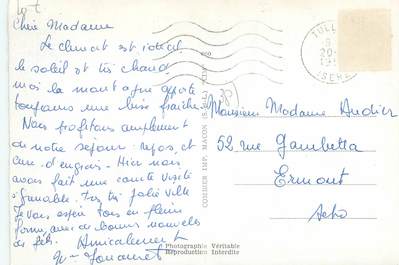 Chère Madame
Le climat est idéal,
le soleil est très chaud
mais la montagne apporte
toujours une brise fraîche.
Nous profitons amplement
de notre séjour repos, et
cure d'engrais - Hier nous
avons fait une courte visite
à Grenoble. Très jolie ville
Je vous espère tous en pleine
forme, avec de bonnes nouvelles
Amicalement
COMBIER IMP. MACON (S.-&-L.)
TULL
20-
ISERE
Monsieur Madame Audier
52 rue Gambetta
Ermont
Photographie Véritable
Reproduction Interdite